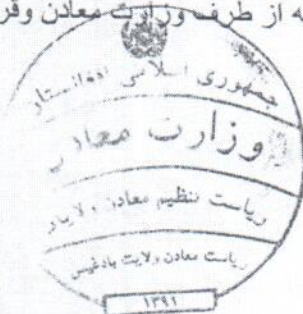 ه از طرف وزارت معادن وقر
جمهوری اسلامی افغانستان
وزارت معادن
ریاست تنظیم معادن ولایات
ریاست معادن ولایت بادغیس
۱۳۹۱